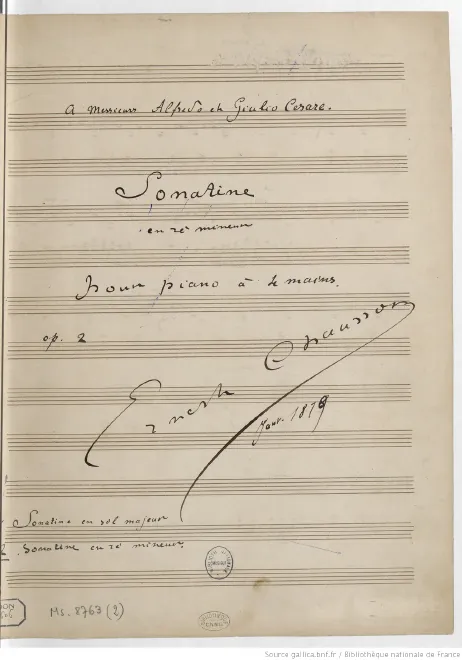 A Messieurs Alfredo et Giulio Cesare.
Sonatine
en ré mineur
pour piano à 4 mains.
op. 2
Ernest Chausson
Janv. 1879
Sonatine en sol majeur
2 Sonatine en ré mineur.
Ms. 8763 (2)
Source gallica.bnf.fr / Bibliothèque nationale de France